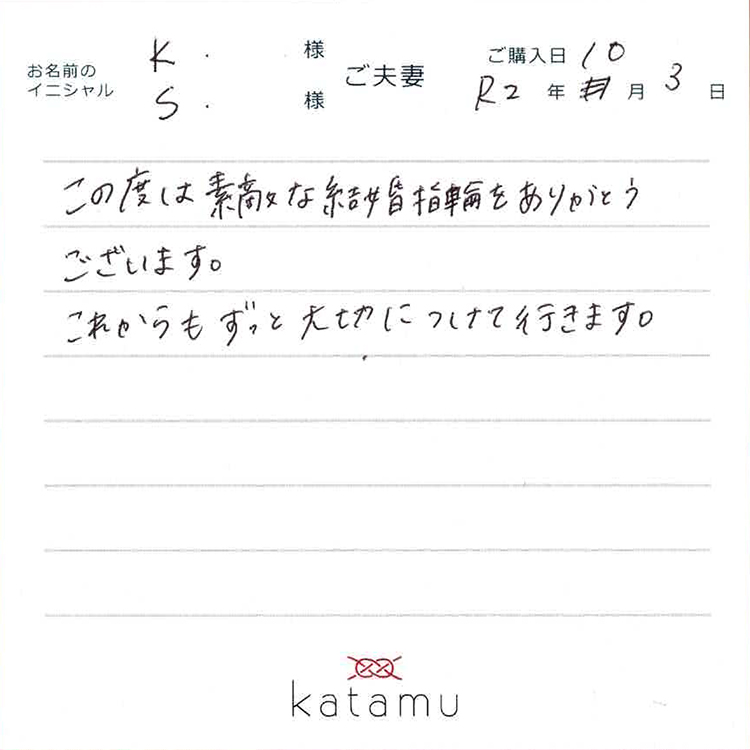 お名前の
イニシャル
K. 様
S. 様
ご夫妻
ご購入日
R2年10月3日
この度は素敵な結婚指輪をありがとう
ございます。
これからもずっと大切につけて行きます。
katamu